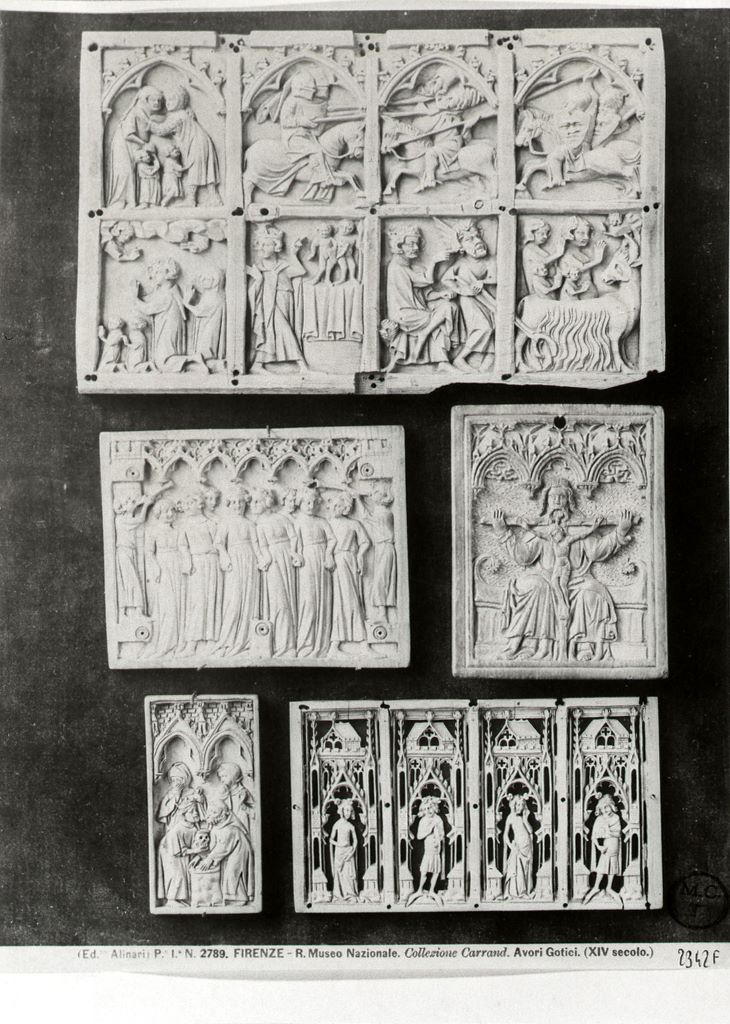 (Ed.ne Alinari) P.e I.a N. 2789. FIRENZE - R. Museo Nazionale. Collezione Carrand. Avori Gotici. (XIV secolo.) 2342F
M.C.